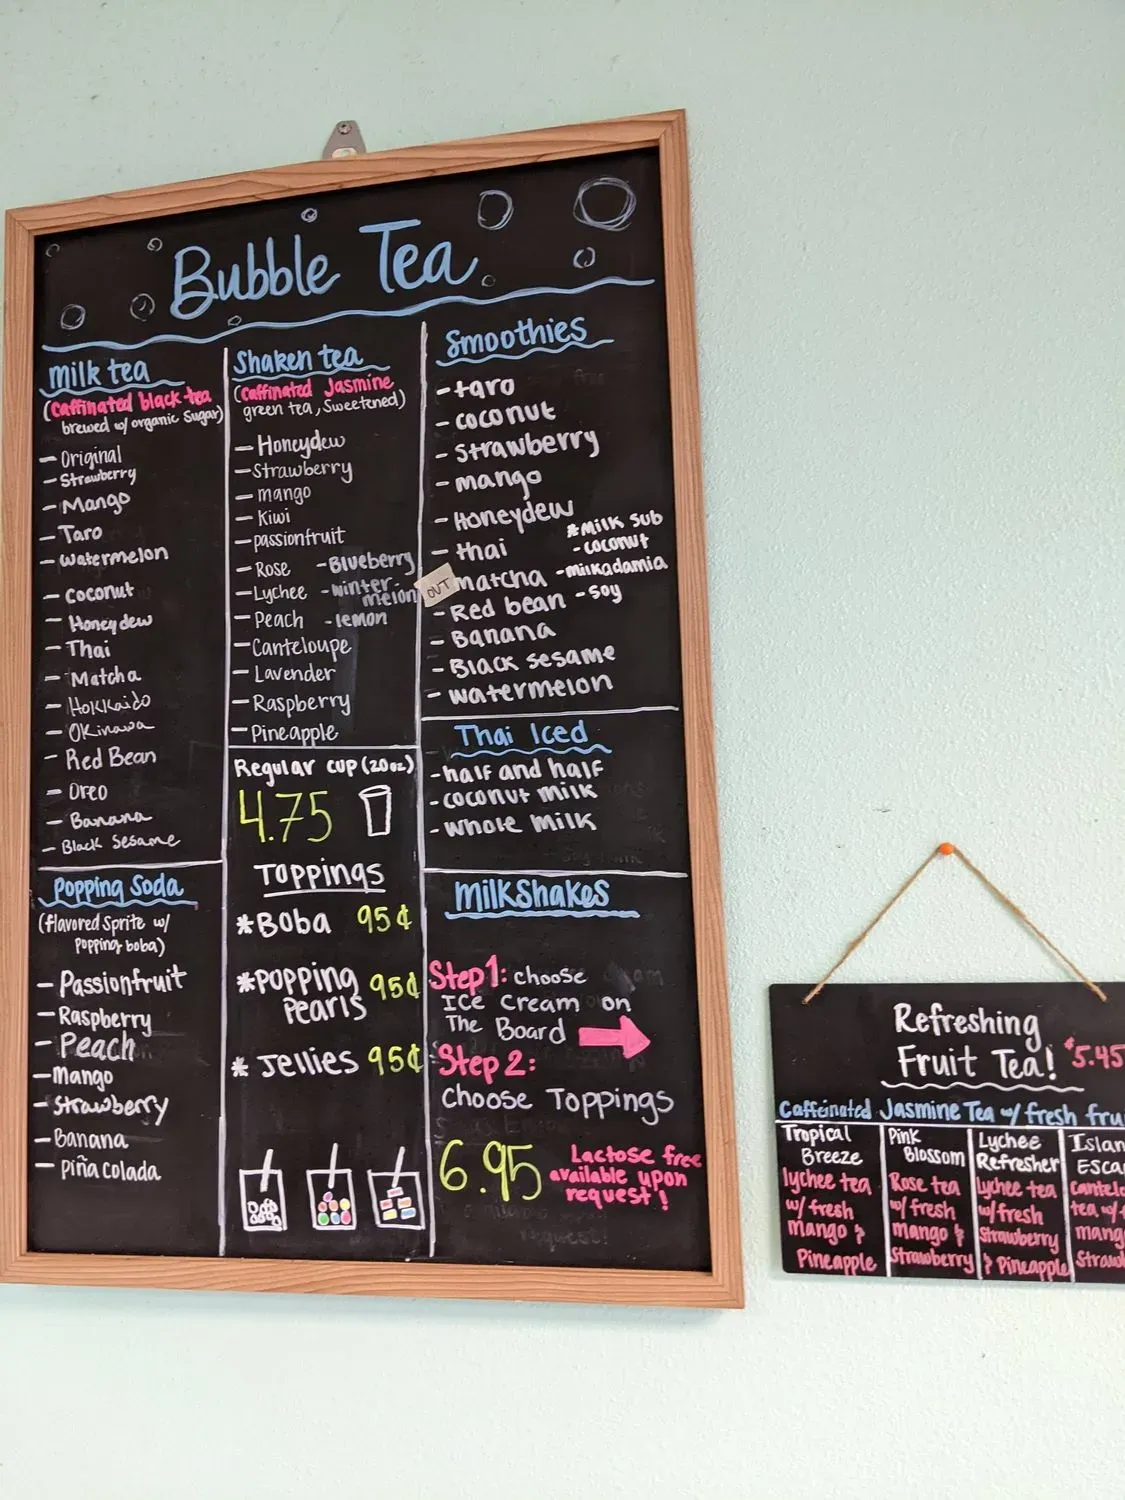 Bubble Tea
Milk tea
(Caffinated black tea
brewed w/ organic Sugar)
- Original
- Strawberry
- Mango
- Taro
- Watermelon
- Coconut
- Honeydew
- Thai
- Matcha
- Hokkaido
- Okinawa
- Red Bean
- Oreo
- Banana
- Black Sesame
Popping Soda
(flavored Sprite w/
Popping boba)
- Passionfruit
- Raspberry
- Peach
- Mango
- Strawberry
- Banana
- Piña Colada
Shaken tea
(Caffinated Jasmine
green tea, Sweetened)
- Honeydew
- Strawberry
- mango
- Kiwi
- passionfruit
- Rose
- Lychee
- Peach
- Canteloupe
- Lavender
- Raspberry
- Pineapple
- Blueberry
- winter-
melon
- lemon
Regular cup (20oz)
4.75
Toppings
*Boba 95¢
*Popping
Pearls 95¢
* Jellies 95¢
Smoothies
- taro
- coconut
- Strawberry
- mango
- Honeydew
- thai
OUT matcha
- Red bean
- Banana
- Black sesame
- watermelon
*Milk sub
- coconut
- milkadamia
- soy
Thai Iced
- half and half
- coconut milk
- whole milk
Milkshakes
Step 1: choose
Ice cream on
The Board
Step 2:
Choose Toppings
6.95
Lactose free
available upon
request!
Refreshing
Fruit Tea! $5.45
Caffeinated Jasmine Tea w/ fresh fru
Tropical
Breeze
lychee tea
w/ fresh
mango &
Pineapple
Pink
Blossom
Rose tea
w/ fresh
mango &
Strawberry
Lychee
Refresher
lychee tea
w/ fresh
Strawberry
& Pineapple
Islan
Esca
Cantel
tea w/
mang
Straw